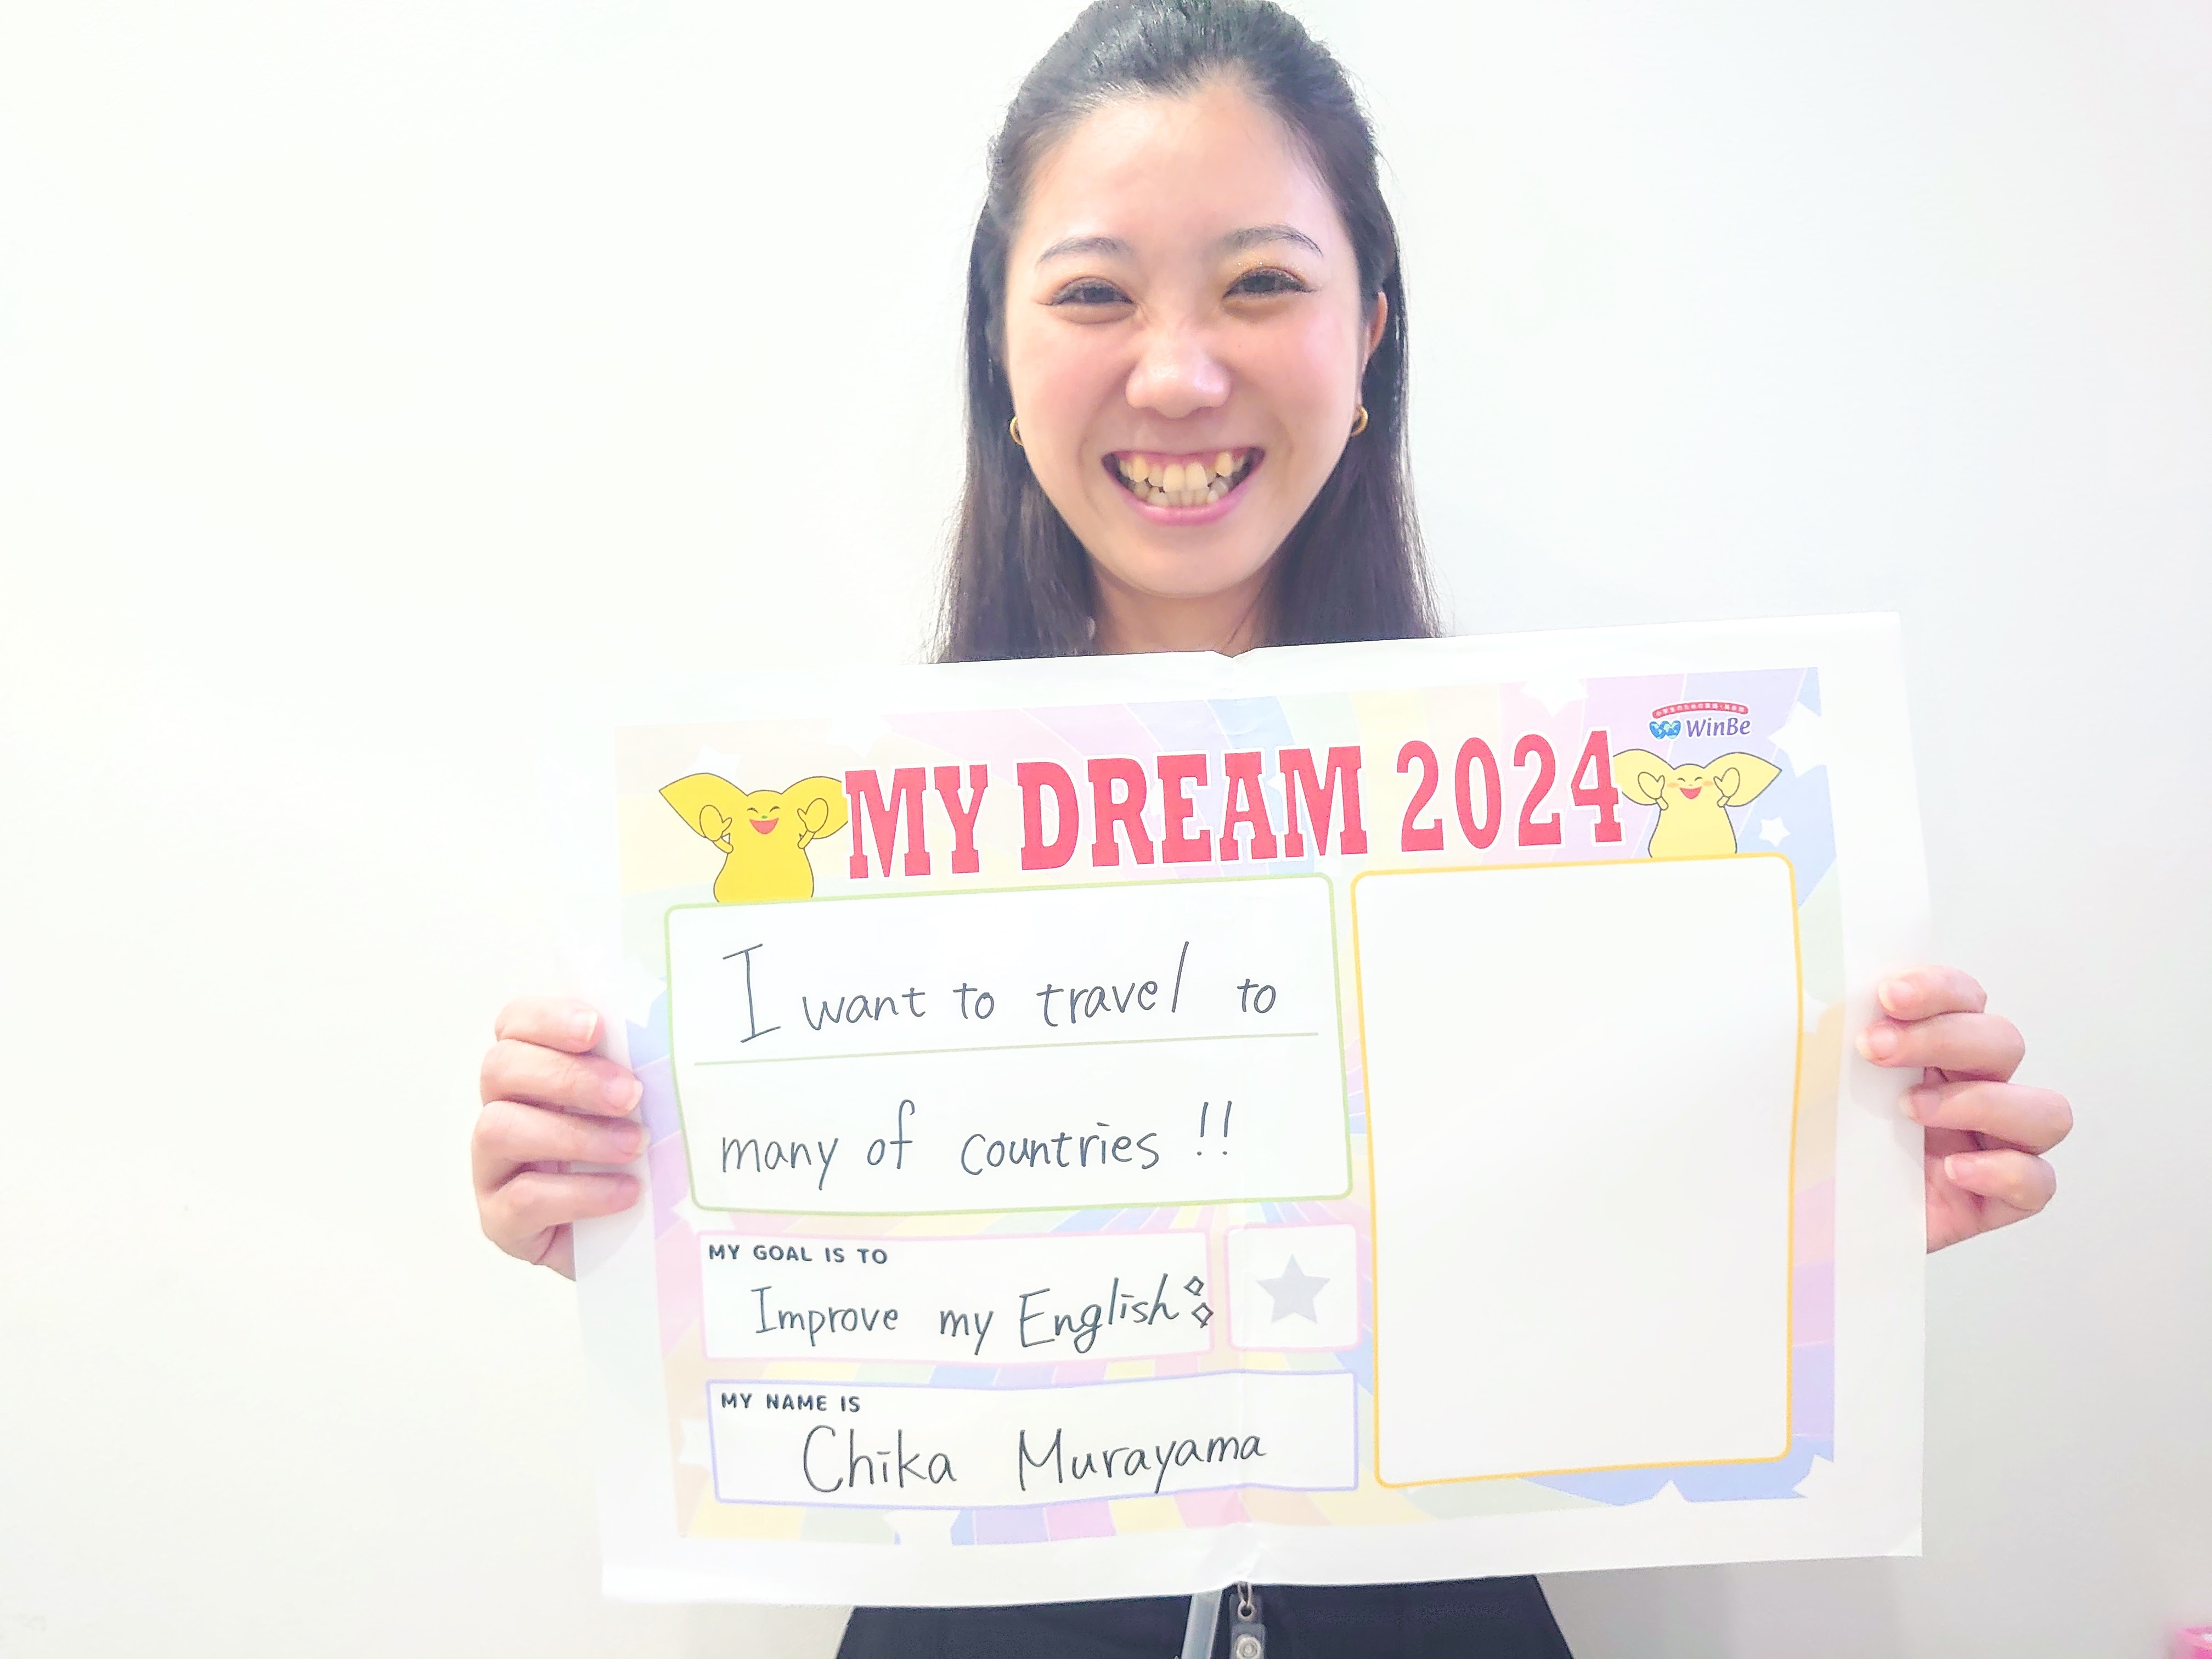 WinBe
MY DREAM 2024
I want to travel to
many of countries !!
MY GOAL IS TO
Improve my English
MY NAME IS
Chika Murayama